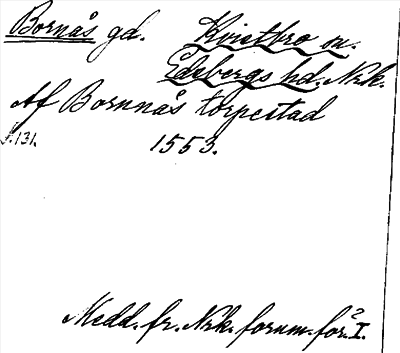 Bornås gd. Kvistbro sn.
Edsbergs hd. Nrk.
Af Bornnås torpestad
s. 131. 1553.
Medd. fr. Nrk. fornm. för. I.